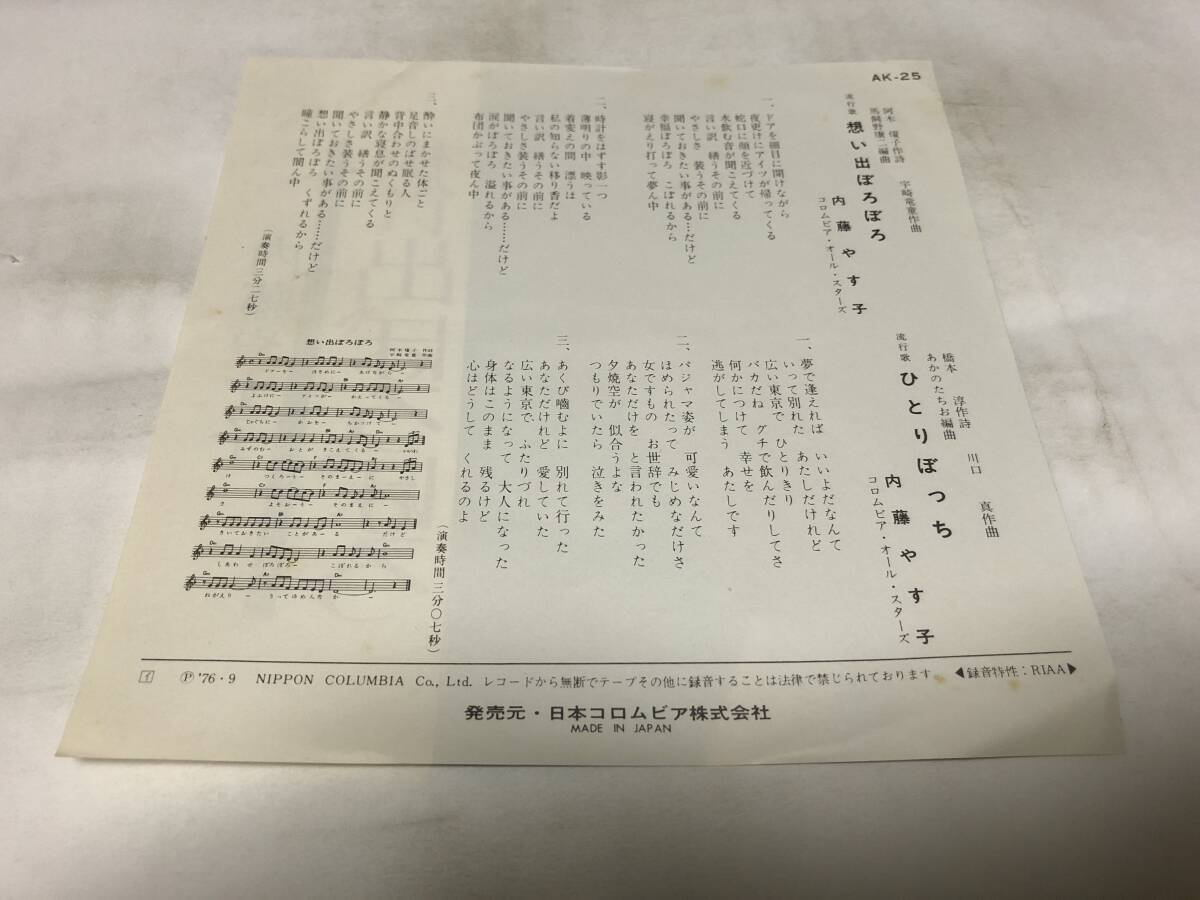 AK-25
流行歌 想い出ぼろぼろ
阿木燿子作詩
宇崎竜童作曲
馬飼野康二編曲
内藤やす子
コロムビア・オール・スターズ
一、ドアを細目に開けながら
夜更けにアイツが帰ってくる
蛇口に顔を近づけて
水飲む音が聞こえてくる
言い訳 繕うその前に
やさしさ 装うその前に
聞いておきたい事がある……だけど
幸福ぼろぼろ こぼれるから
寝がえり打って夢ん中
二、時計をはずす影一つ
薄明りの中 映っている
着変えの間 漂うは
私の知らない移り香だよ
言い訳 繕うその前に
やさしさ装うその前に
聞いておきたい事がある……だけど
涙がぼろぼろ 溢れるから
布団かぶって夜ん中
三、酔いにまかせた体ごと
足音しのばせ眠る人
背中合わせのぬくもりと
静かな寝息が聞こえてくる
言い訳 繕うその前に
やさしさ装うその前に
聞いておきたい事がある……だけど
想い出ぼろぼろ くずれるから
瞳こらして闇ん中
(演奏時間三分二七秒)
流行歌 ひとりぼっち
橋本 淳作詩
川口 真作曲
あかのたちお編曲
内藤やす子
コロムビア・オール・スターズ
一、夢で逢えれば いいよだなんて
いって別れた あたしだけれど
広い東京で ひとりきり
バカだね グチで飲んだりしてさ
何かにつけて 幸せを
逃がしてしまう あたしです
二、パジャマ姿が 可愛いなんて
ほめられたって みじめなだけさ
女ですもの お世辞でも
あなただけを と言われたかった
夕焼空が 似合うよな
つもりでいたら 泣きをみた
三、あくび嚙むよに 別れて行った
あなただけれど 愛していた
広い東京で ふたりづれ
なるようになって 大人になった
身体はこのまま 残るけど
心はどうして くれるのよ
(演奏時間三分〇七秒)
想い出ぼろぼろ
阿木燿子 作詩
宇崎竜童 作曲
ドアーをー ほそめにー あけながらー
よふけにー アイツがー かえってくるー
じゃぐちにー かおをー ちかづけてー
みずのむー おとが きこえてくるー いいわ
け つくろーうー そのまーえーに やさし
さ よそおーうー そのまえにー
きいておきたい ことがあーる だけど
しあわせ ぼろぼろー こぼれるから
ねがえりー うってゆめんなかー
㋑ Ⓟ '76・9 NIPPON COLUMBIA Co., Ltd. レコードから無断でテープその他に録音することは法律で禁じられております ◀録音特性:RIAA▶
発売元・日本コロムビア株式会社
MADE IN JAPAN